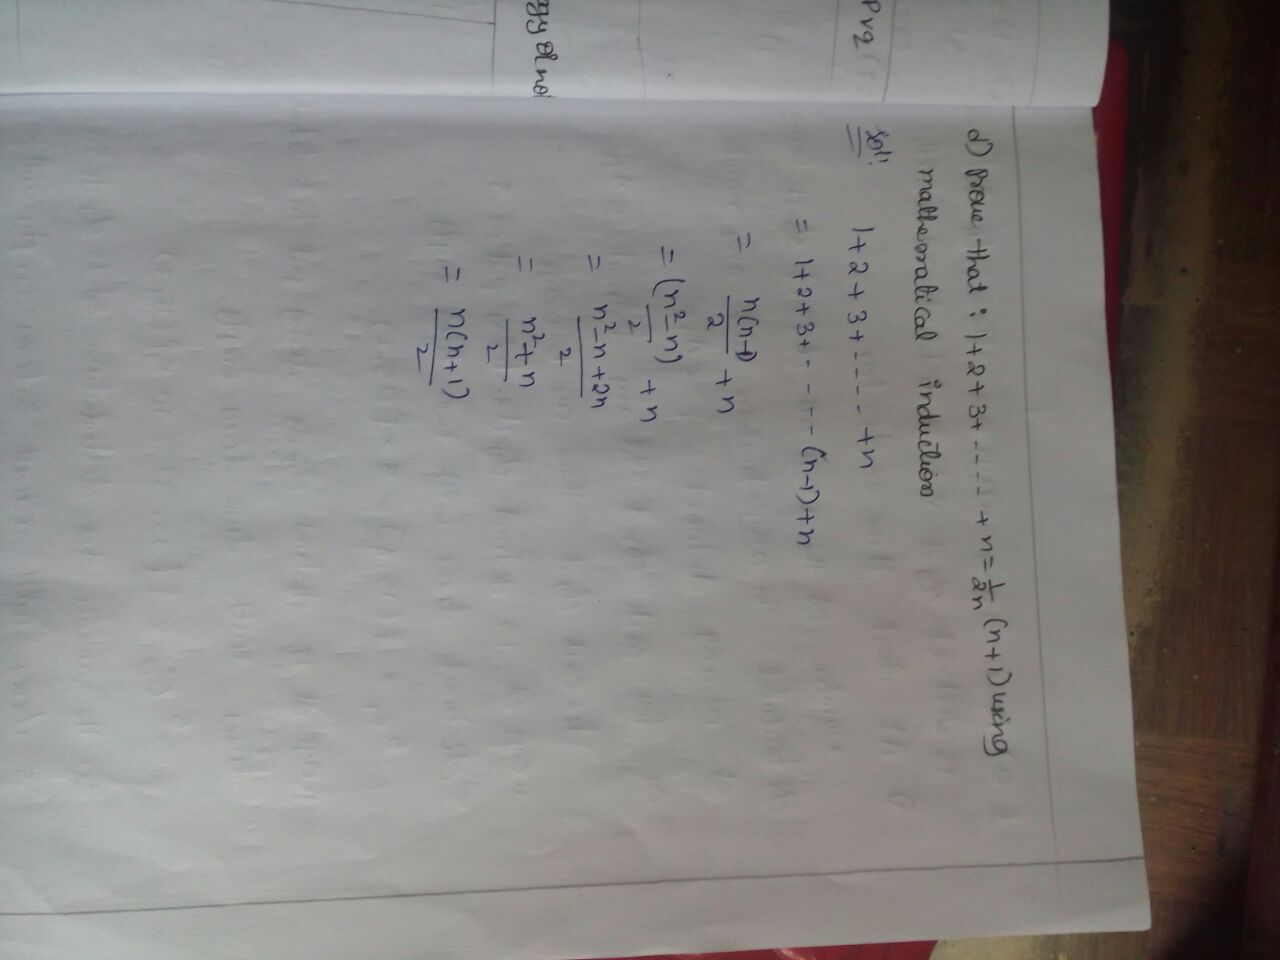 Pvq
ggy
d) Prove that : 1+2+3+ ---- + n = 1/2n (n+1) using
mathematical induction
Sol:
1+2+3+ ---- +n
= 1+2+3+ ---- (n-1)+n
= n(n-1)/2 + n
= (n²-n)/2 + n
= n²-n+2n/2
= n²+n/2
= n(n+1)/2